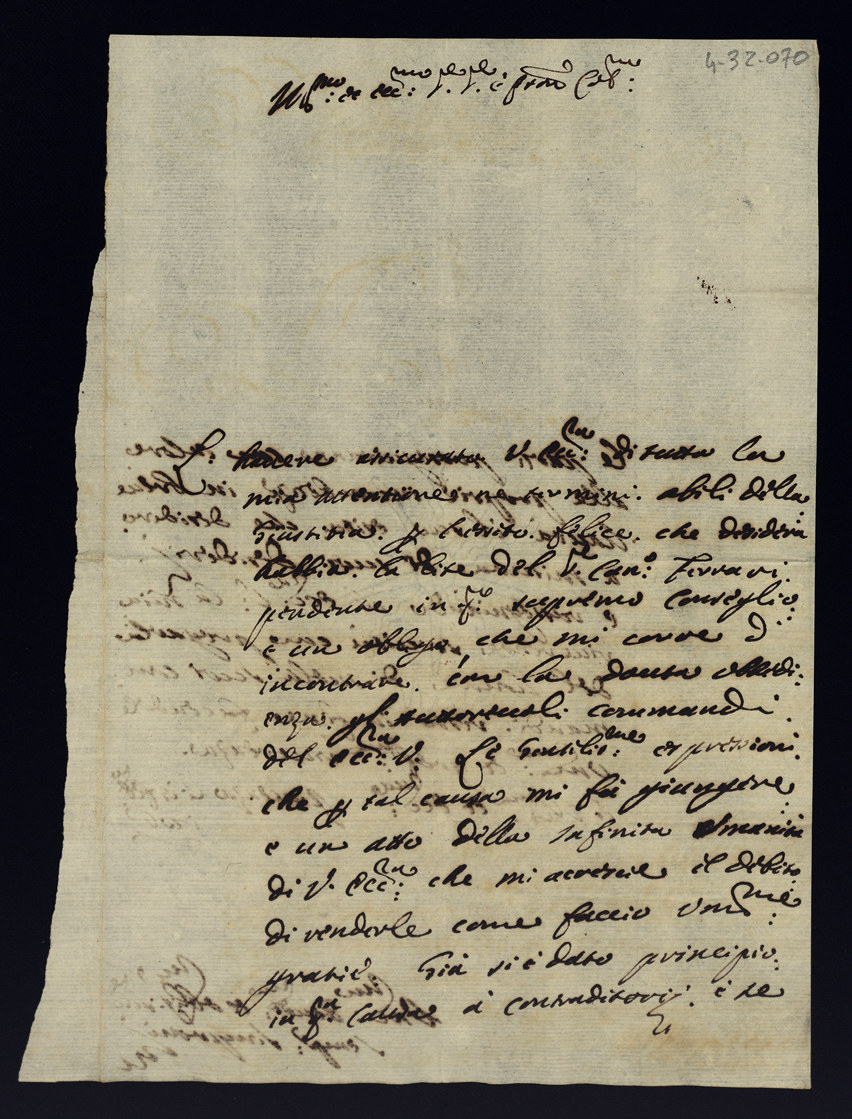 4-32-070
Ill:mo et ecc:mo Sr Sr e Pron Col:mo
L' havere assicurata V. Ecc:za di tutta la
mia attentione ne termini abili della
Giustitia, p l'esito felice, che desidera
habbia la lite del Sr Can:o Ferrari
pendente in q:o supremo Conseglio
è un obligo, che mi corre d'
incontrare con la douta obbedi:
enza gl'autoreuoli commandi
del Ecc:za V. Le Gentilis:me espressioni
che p tal causa mi fà giungere
e un atto della infinita Umanità
di V. Ecc:za che mi accresce il debito
di renderle come faccio Um:me
gratie Già si è dato principio
in q:ta causa à contraditorij, e se